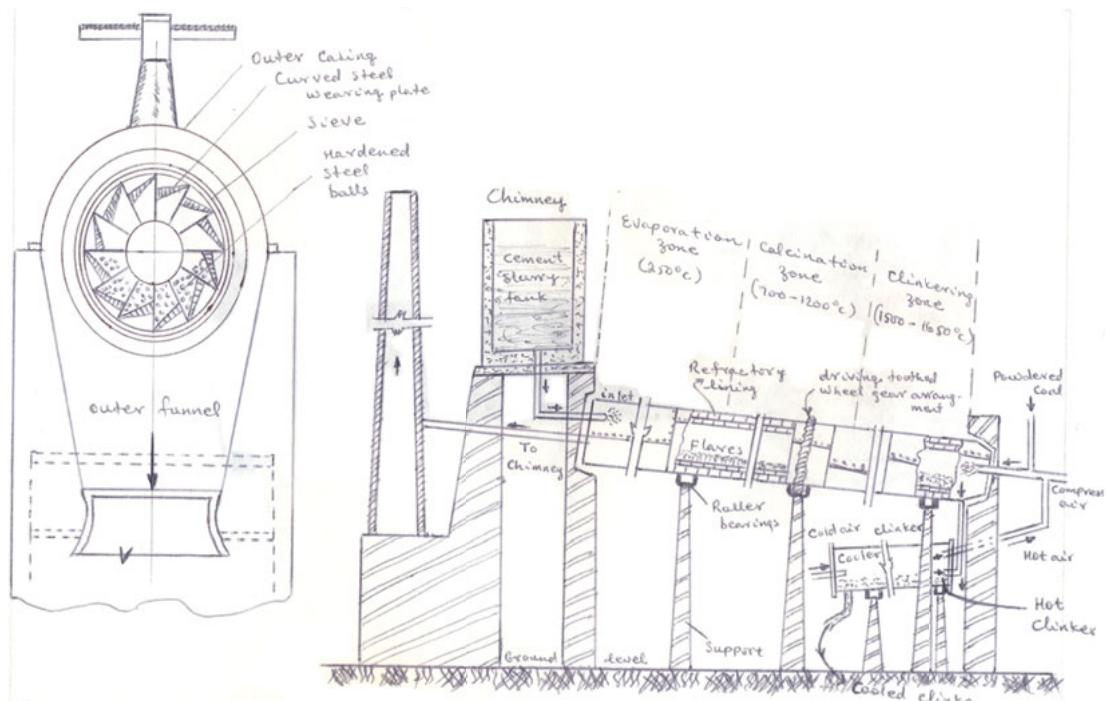 Outer Casing
Curved steel
wearing plate
Sieve
Hardened
steel
balls
outer funnel
Chimney
cement
slurry
tank
Evaporation
zone
(250°c)
Calcination
zone
(700-1200°c)
Clinkering
zone
(1500-1650°c)
Refractory
lining
driving toothed
wheel gear arrang-
ment
Powdered
Coal
inlet
To
Chimney
Flares
Compress
air
Roller
bearings
Cold air clinker
Cooler
Hot air
Hot
Clinker
Support
Ground level
Cooled